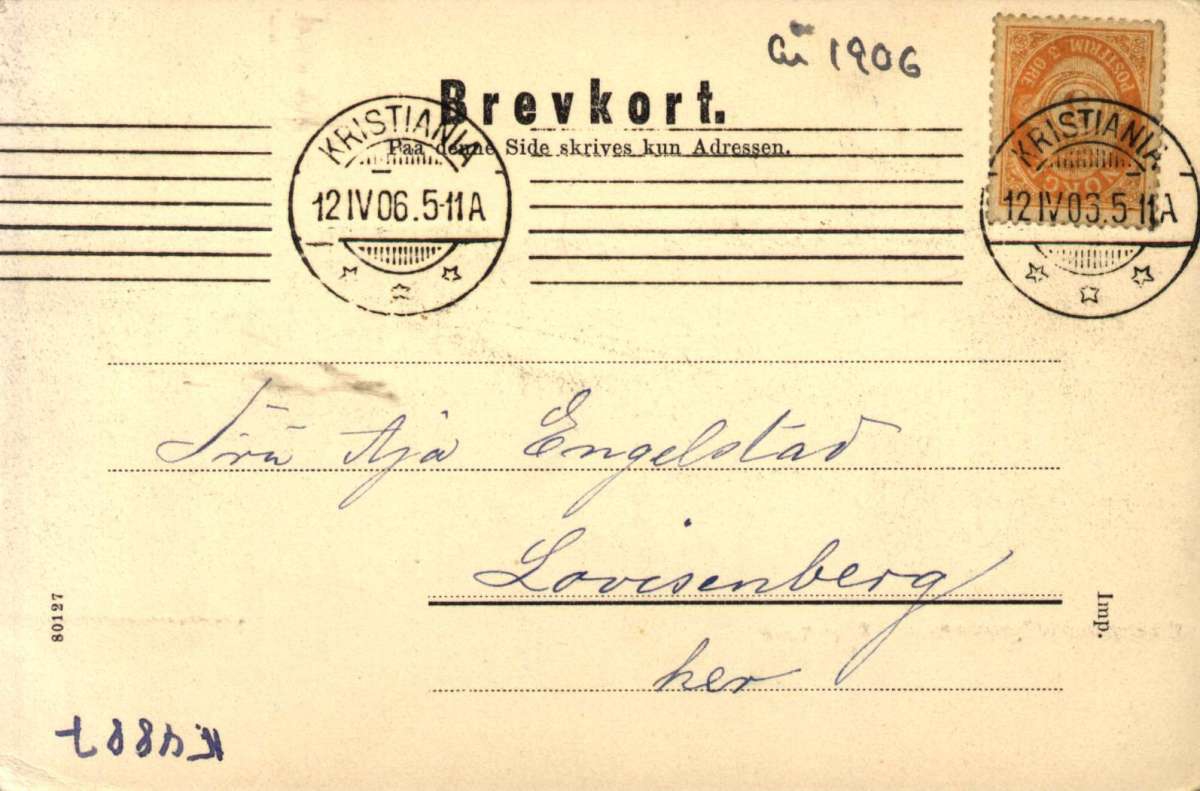 år 1906
POSTFRIM. 3 ØRE
NORGE
Brevkort.
Paa denne Side skrives kun Adressen.
KRISTIANIA
12 IV 06. 5-11 A
KRISTIANIA
12 IV 06. 5-11 A
Frü Aja Engelstad
Lovisenberg
her
80127
Imp.